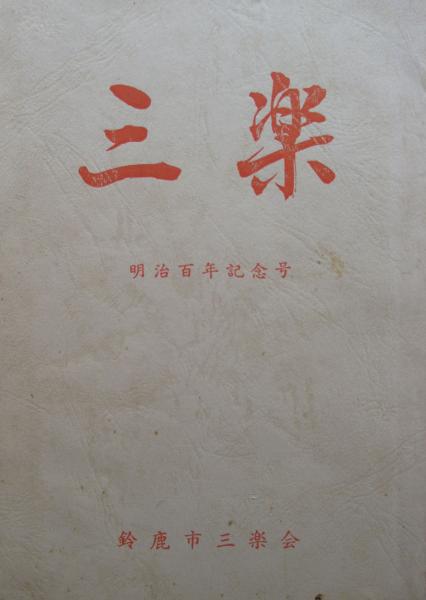 三楽
明治百年記念号
鈴鹿市三楽会